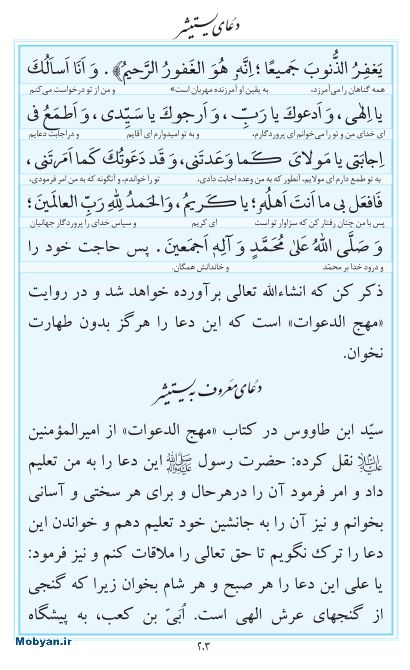 دعای یستشیر
یَغفِرُ الذُّنوبَ جَمیعًا؛ اِنَّهُ هُوَ الغَفورُ الرَّحیمُ﴾. وَ اَنَا اَسأَلُكَ
همه گناهان را می‌آمرزد، به یقین او آمرزنده مهربان است» و من از تو درخواست می‌کنم
یا اِلٰهی، وَ اَدعوكَ یا رَبِّ، وَ اَرجوكَ یا سَیِّدی، وَ اَطمَعُ فی
ای خدای من و تو را می‌خوانم ای پروردگارم، و به تو امیدوارم ای آقایم و دراجابت دعایم
اِجابَتی یا مَولایَ كَما وَعَدتَنی، وَ قَد دَعَوتُكَ كَما اَمَرتَنی،
به تو طمع دارم ای مولایم، آنطور که به من وعده اجابت دادی، تو را خواندم، و آنگونه که به من امر فرمودی،
فَافعَل بی ما اَنتَ اَهلُهُ؛ یا كَریمُ، وَالحَمدُ لِلّٰهِ رَبِّ العالَمینَ؛
پس با من چنان رفتار کن که سزاوار تو است ای کریم و سپاس خدای را پروردگار جهانیان
وَ صَلَّی اللّٰهُ عَلیٰ مُحَمَّدٍ وَ آلِهِ اَجمَعینَ. پس حاجت خود را
و درود خدا بر محمّد و خاندانش همگان.
ذکر کن که انشاءالله تعالی برآورده خواهد شد و در روایت
«مهج الدعوات» است که این دعا را هرگز بدون طهارت
نخوان.
دعای معروف به یستشیر
سیّد ابن طاووس در کتاب «مهج الدعوات» از امیرالمؤمنین
علیه السلام نقل کرده: حضرت رسول ﷺ این دعا را به من تعلیم
داد و امر فرمود آن را درهرحال و برای هر سختی و آسانی
بخوانم و نیز آن را به جانشین خود تعلیم دهم و خواندن این
دعا را ترك نگویم تا حق تعالی را ملاقات کنم و نیز فرمود:
یا علی این دعا را هر صبح و هر شام بخوان زیرا که گنجی
از گنجهای عرش الهی است. اُبَیّ بن کعب، به پیشگاه
Mobyan.ir
۲۰۳